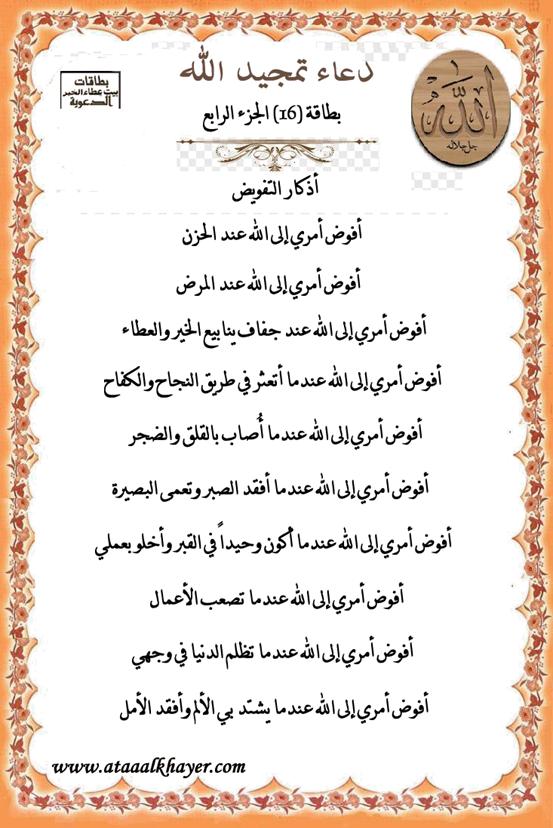 دعاء تمجيد الله
بطاقات
بيت عطاء الخير
الدعوية
الله
جل جلاله
بطاقة (16) الجزء الرابع
أذكار التفويض
أفوض أمري إلى الله عند الحزن
أفوض أمري إلى الله عند المرض
أفوض أمري إلى الله عند جفاف ينابيع الخير والعطاء
أفوض أمري إلى الله عندما أتعثر في طريق النجاح والكفاح
أفوض أمري إلى الله عندما أُصاب بالقلق والضجر
أفوض أمري إلى الله عندما أفقد الصبر وتعمى البصيرة
أفوض أمري إلى الله عندما أكون وحيداً في القبر وأخلو بعملي
أفوض أمري إلى الله عندما تصعب الأعمال
أفوض أمري إلى الله عندما تظلم الدنيا في وجهي
أفوض أمري إلى الله عندما يشتد بي الألم وأفقد الأمل
www.ataaalkhayer.com